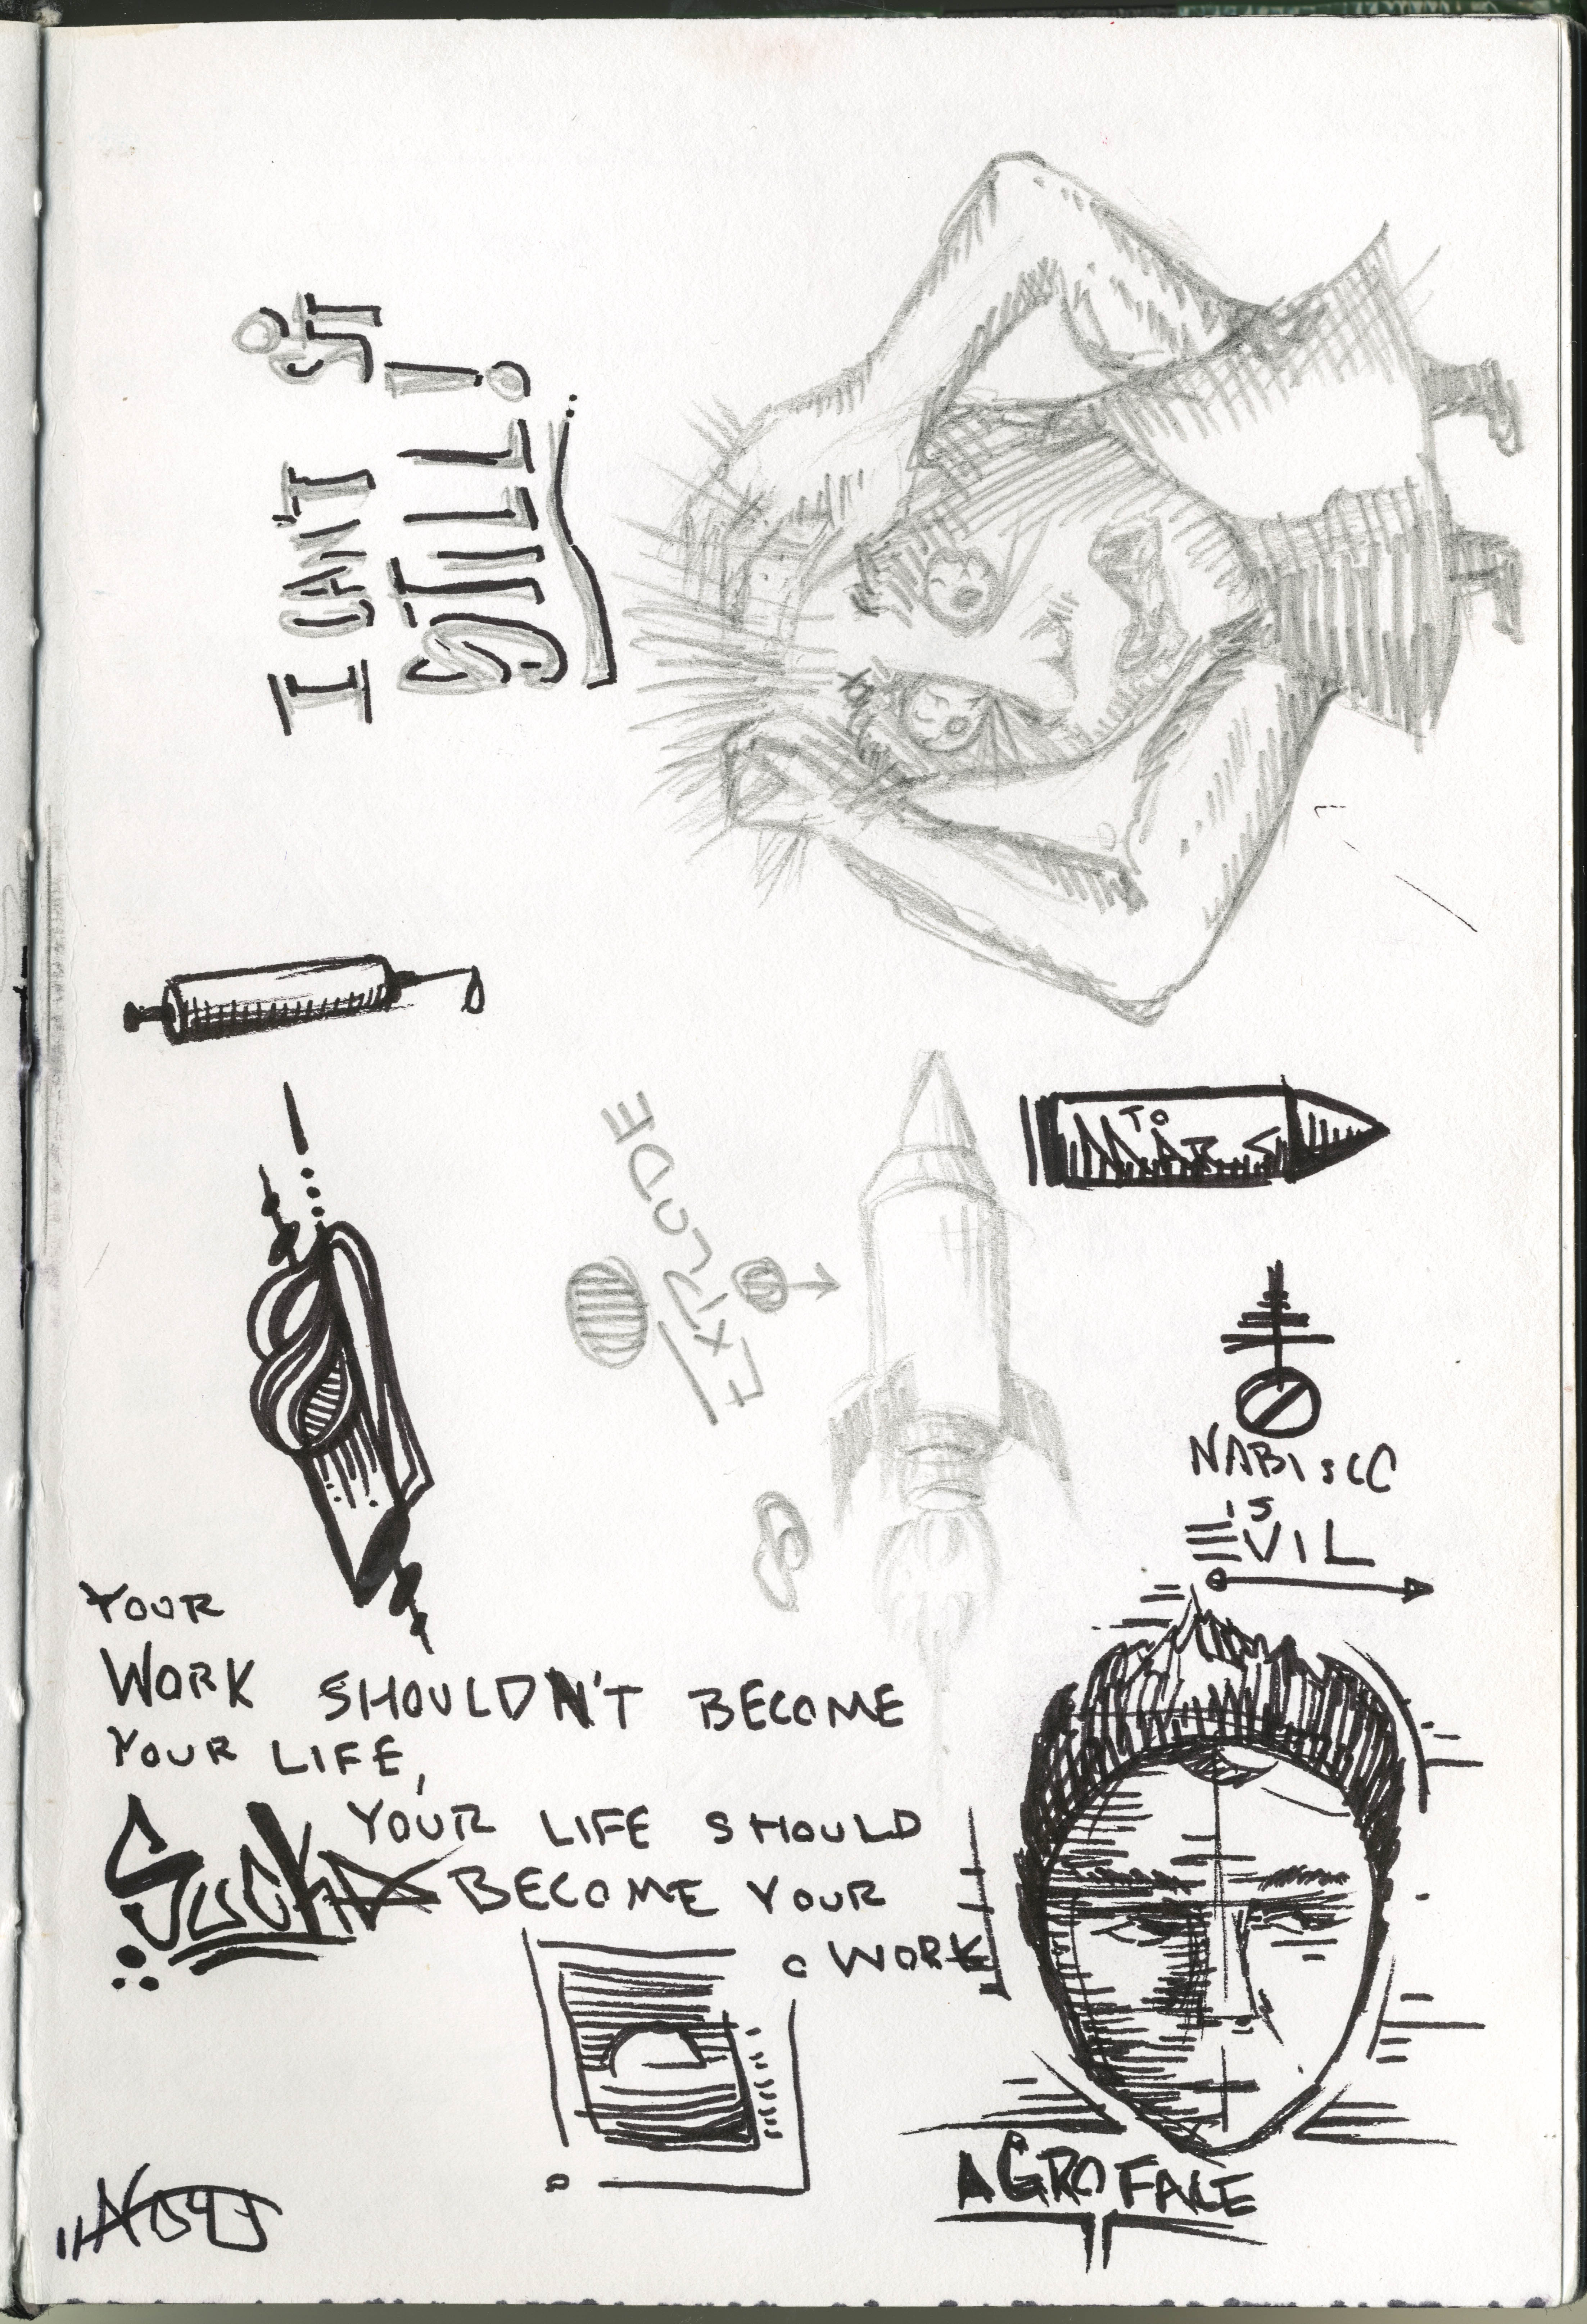 I CAN'T SIT
STILL!
EXCLUDE
TO
MARS
NABISCO
IS
EVIL
YOUR
WORK SHOULDN'T BECOME
YOUR LIFE,
YOUR LIFE SHOULD
SUCKA BECOME YOUR
WORK
AGRO FACE